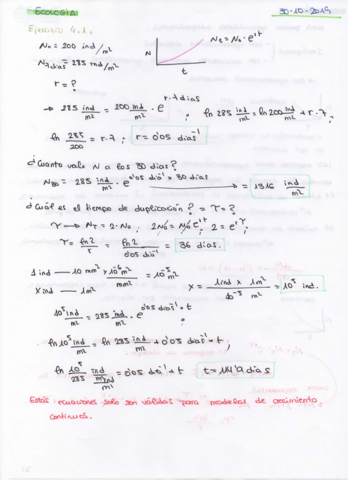 ECOLOGÍA 30-10-2015
Ejercicio 4.1.
N₀ = 200 ind/m²
N
t
Nt = N₀ · e^rt
N7 días = 285 ind/m²
r = ?
→ 285 ind/m² = 200 ind/m² · e^r·7 días ; ln 285 ind/m² = ln 200 ind/m² + r·7 ;
ln 285/200 = r·7 ; r = 0'05 días⁻¹
¿Cuánto vale N a los 30 días?
N30 = 285 ind/m² · e^0'05 días⁻¹ × 30 días → = 1316 ind/m²
¿Cuál es el tiempo de duplicación? = T = ?
T → NT = 2·N₀ ; 2N₀ = N₀ e^rt ; 2 = e^rT ;
T = ln 2/r = ln 2/0'05 días⁻¹ = 36 días.
1 ind — 10 mm² × 10⁻⁶ m²/mm² = 10⁻⁵ m²
X ind — 1m²
X = 1 ind × 1m²/10⁻⁵ m² = 10⁵ ind.
10⁵ ind/m² = 285 ind/m² · e^0'05 días⁻¹ · t ;
ln 10⁵ ind/m² = ln 285 ind/m² + 0'05 días⁻¹ · t ;
ln 10⁵/285 ind/m²/ind/m² = 0'05 días⁻¹ · t
t = 117'9 días
Estas ecuaciones solo son válidas para modelos de crecimiento
continuos.